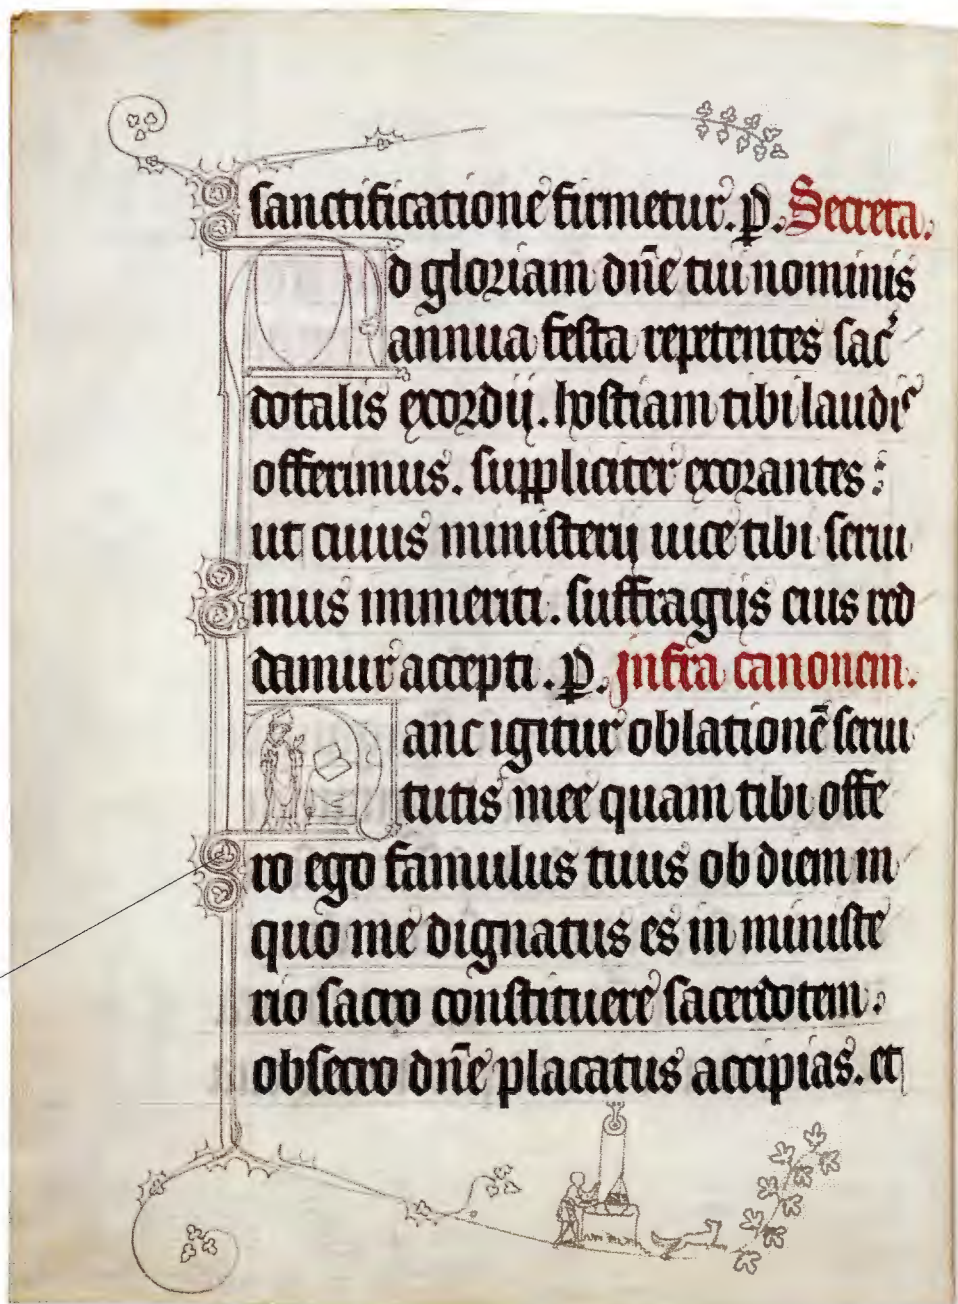 sanctificatione firmetur. p. Secreta.
d gloriam dn̄e tui nominis
annua festa repetentes sac᷒
dotalis exordij. hostiam tibi laudis
offerimus. suppliciter exorantes :
ut cuius ministerij uice tibi serui
mus immeriti. suffragijs eius red
damur accepti. p. Infra canonem.
anc igitur oblationē serui
tutis mee quam tibi offe
ro ego famulus tuus ob diem in
quo me dignatus es in ministe
rio sacro constituere sacerdotem.
obsecro dn̄e placatus accipias. et